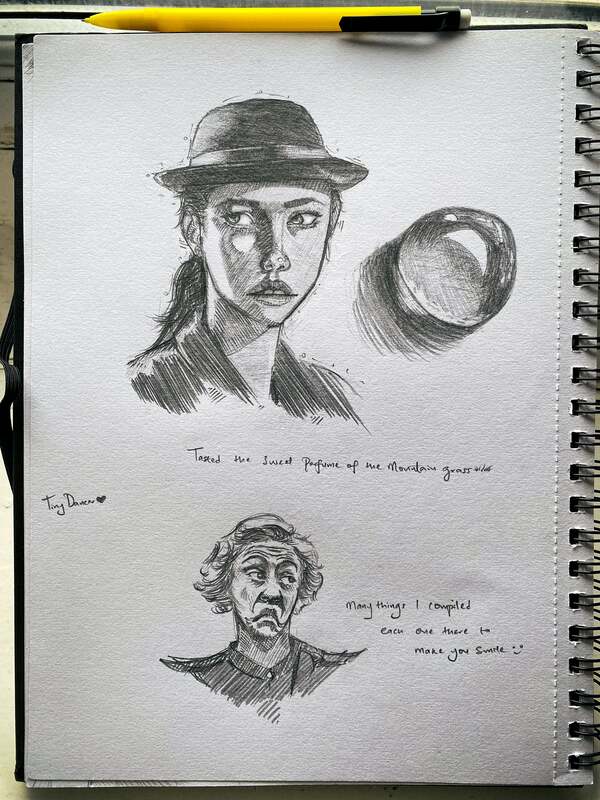 Tasted the Sweet Perfume of the Mountain grass
Tiny Dancer ♥
Many things I compiled
each one there to
make you smile :)